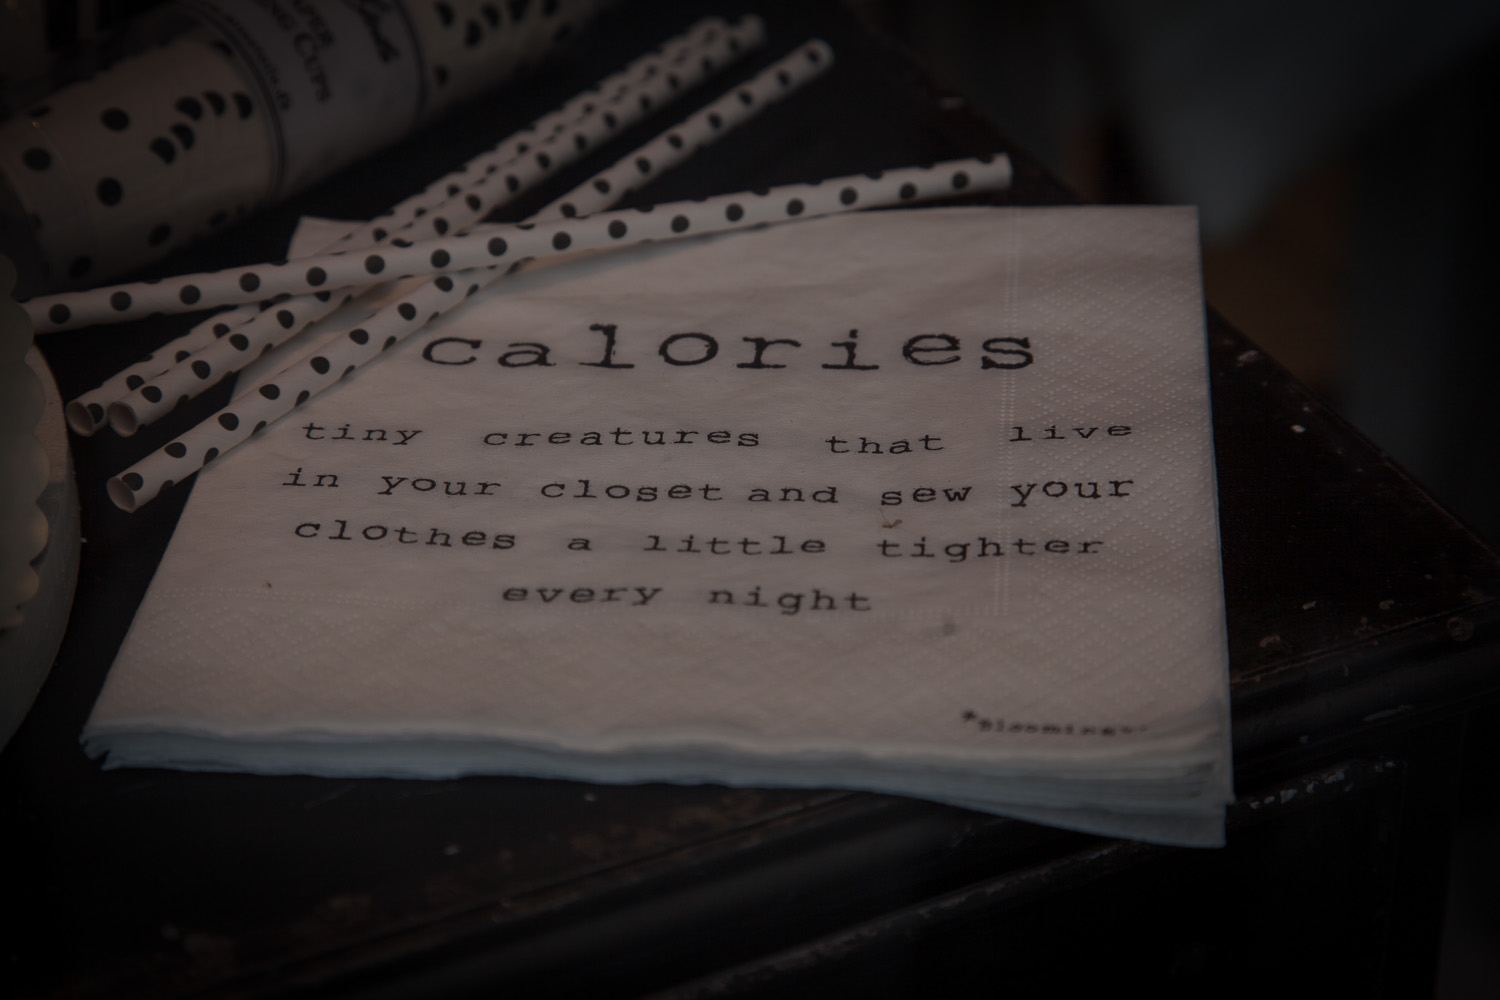 CUPS
calories
tiny creatures that live
in your closet and sew your
clothes a little tighter
every night